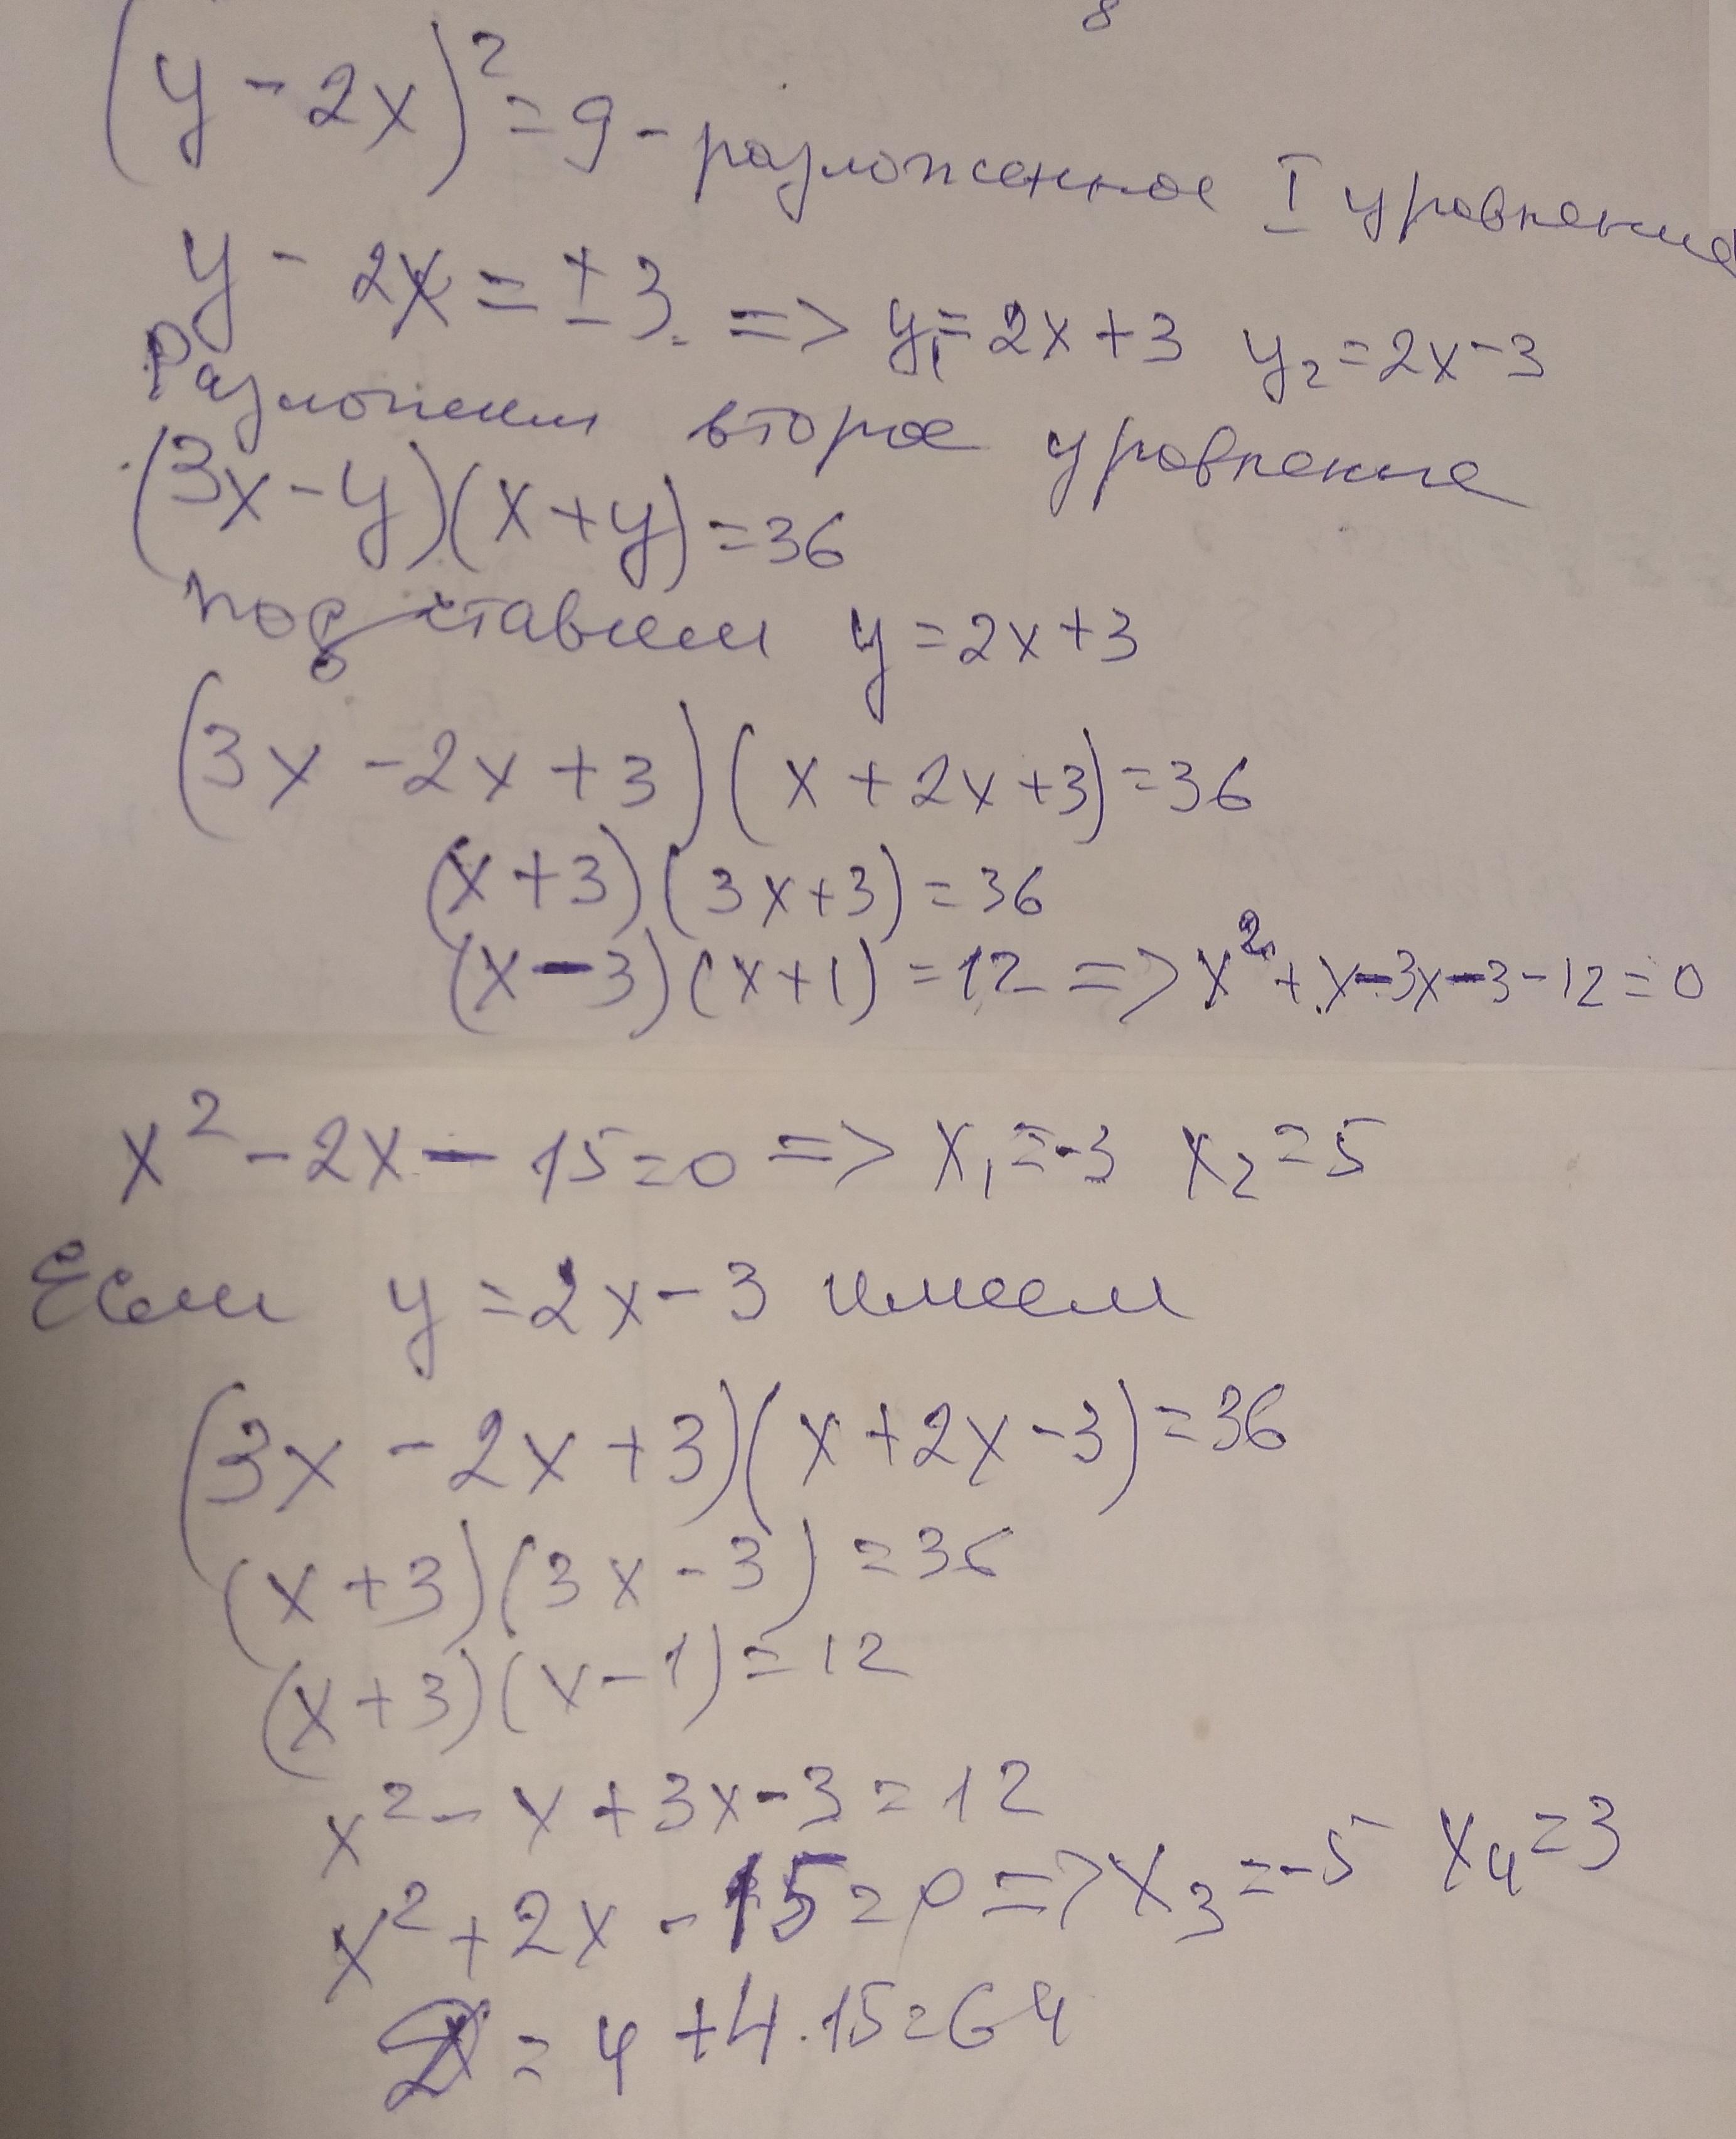 8
(y - 2x)² = 9 - разложенное I уравнение
y - 2x = ±3. => y₁ = 2x + 3 y₂ = 2x - 3
Разложим второе уравнение
(3x - y)(x + y) = 36
подставим y = 2x + 3
(3x - 2x + 3)(x + 2x + 3) = 36
(x + 3)(3x + 3) = 36
(x - 3)(x + 1) = 12 => x² + x - 3x - 3 - 12 = 0
x² - 2x - 15 = 0 => x₁ = -3 x₂ = 5
Если y = 2x - 3 имеем
(3x - 2x + 3)(x + 2x - 3) = 36
(x + 3)(3x - 3) = 36
(x + 3)(x - 1) = 12
x² - x + 3x - 3 = 12
x² + 2x - 15 = 0 => x₃ = -5 x₄ = 3
D = 4 + 4 · 15 = 64